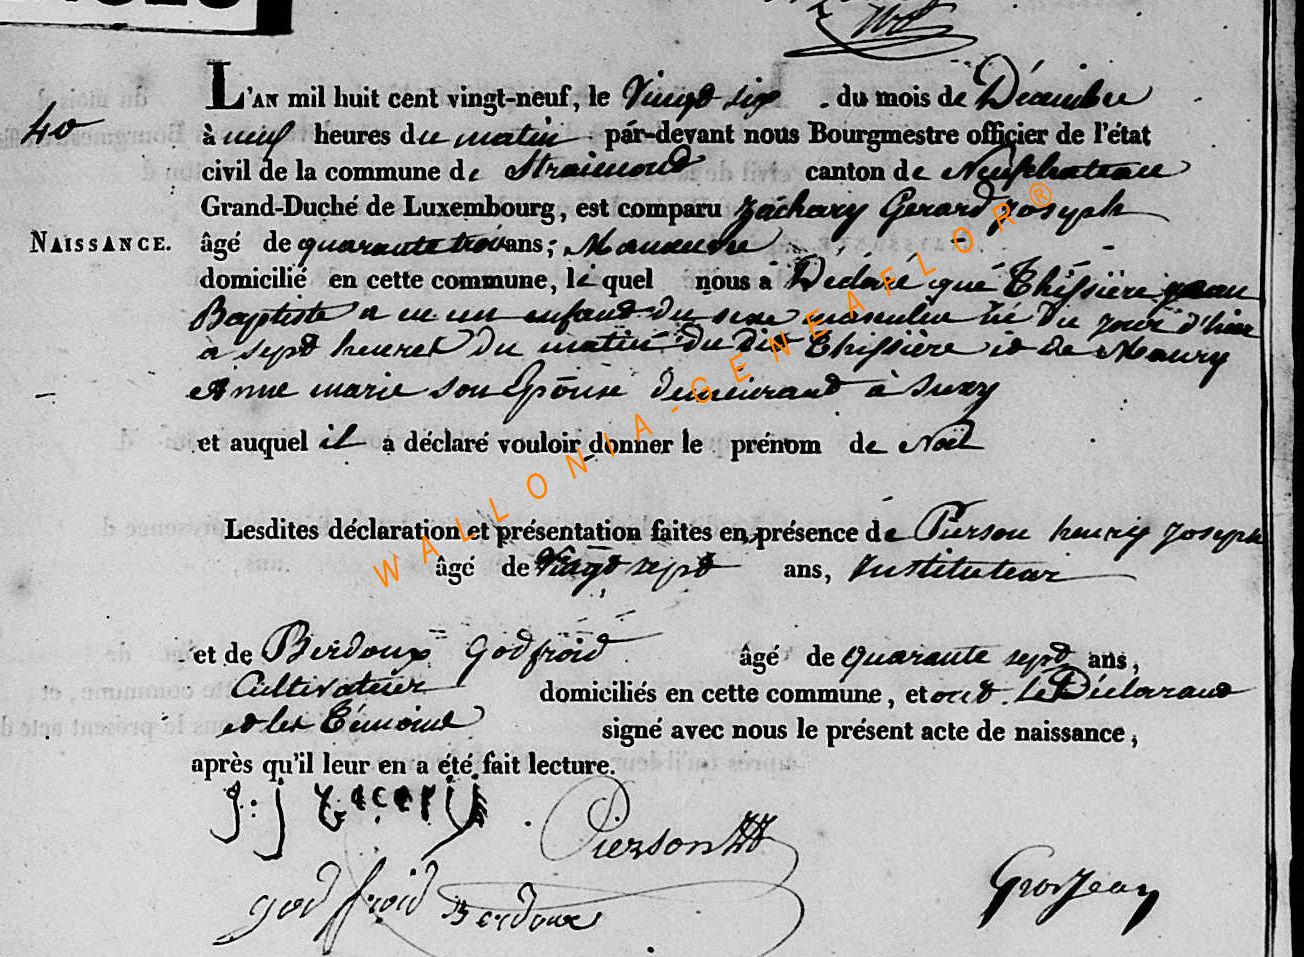 L'AN mil huit cent vingt-neuf, le Vingt six du mois de Décembre
40
à neuf heures du matin par-devant nous Bourgmestre officier de l'état
civil de la commune de Straimond canton de Neufchateau
Grand-Duché de Luxembourg, est comparu Zachary Gerard Joseph
NAISSANCE.
âgé de quarante trois ans; Manœuvre
domicilié en cette commune, lequel nous a Déclaré que Thissière jean
Baptiste a eu un enfant du sexe masculin né du jour d'hier
a sept heures du matin du dit Thissière et de Maury
Anne marie son Epouse demeurant à Suxy
et auquel il a déclaré vouloir donner le prénom de Noël
Lesdites déclaration et présentation faites en présence de Pierson henry Joseph
âgé de Vingt sept ans, Instituteur
et de Berdoux Godfroid âgé de quarante sept ans,
Cultivateur domiciliés en cette commune, et ont Le Déclarant
et les Témoins signé avec nous le présent acte de naissance,
après qu'il leur en a été fait lecture.
g: j zacary
Pierson HJ
god froid Berdoux
GrosJean
WALLONIA-GENEAFLOR®